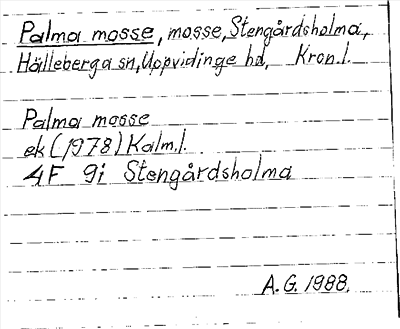 Palma mosse, mosse, Stengårdsholma,
Hälleberga sn, Uppvidinge hd, Kron.l.
Palma mosse
ek (1978) Kalm.l.
4F 9i Stengårdsholma
A.G. 1988.